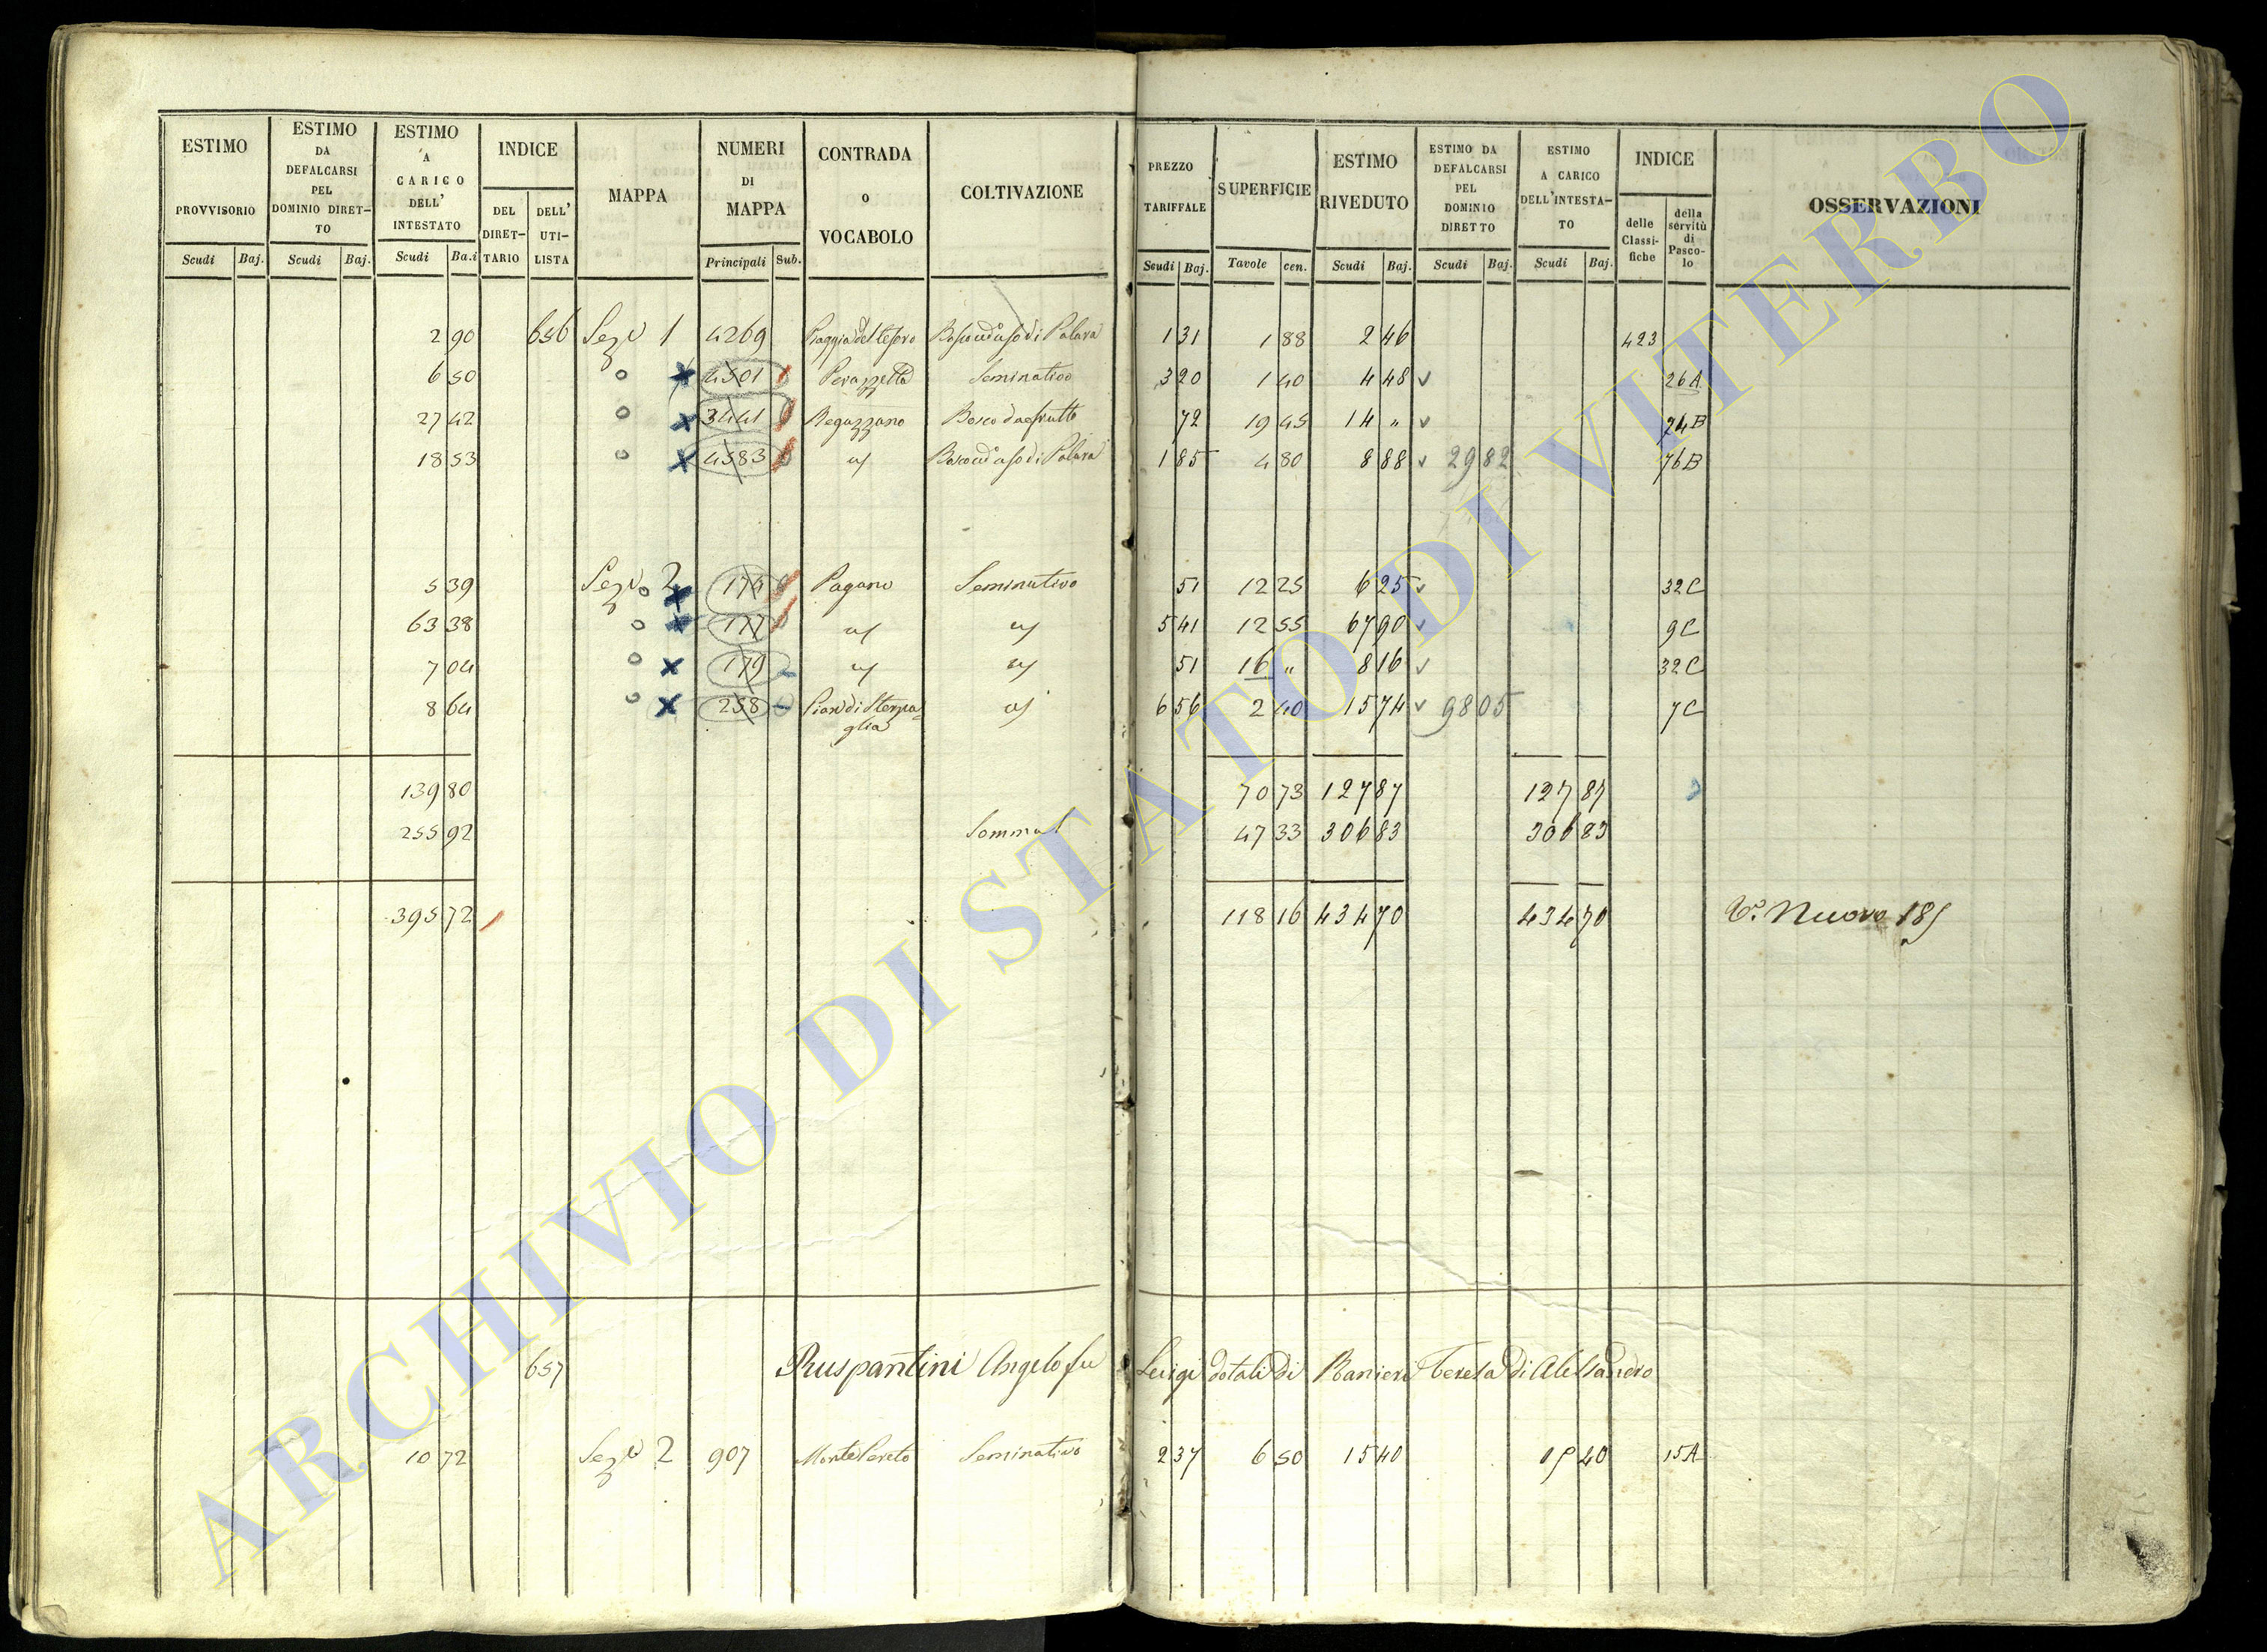 ESTIMO PROVVISORIO
ESTIMO DA DEFALCARSI PEL DOMINIO DIRET-TO
ESTIMO A CARICO DELL' INTESTATO
INDICE
DEL DIRET-TARIO
DELL' UTI-LISTA
MAPPA
NUMERI DI MAPPA
CONTRADA o VOCABOLO
COLTIVAZIONE
PREZZO TARIFFALE
SUPERFICIE
ESTIMO RIVEDUTO
ESTIMO DA DEFALCARSI PEL DOMINIO DIRETTO
ESTIMO A CARICO DELL'INTESTA-TO
INDICE
delle Classi-fiche
della servitù di Pasco-lo
OSSERVAZIONI
Scudi Baj. Scudi Baj. Scudi Ba.i Principali Sub. Scudi Baj. Tavole cen. Scudi Baj. Scudi Baj. Scudi Baj.
2 90 656 Sez 1 4269 Piaggia del tesoro Bosco ad uso di Palara 1 31 1 88 2 46 423
6 50 4501 Perazzetta Seminativo 3 20 1 40 4 48 26A
27 42 3441 Regazzano Bosco da frutto 72 19 45 14 " 74B
18 53 4583 Bosco ad uso di Palara 1 85 4 80 8 88 29 82 76B
5 39 Sez 2 174 Pagano Seminativo 51 12 25 6 25 32C
63 38 177 5 41 12 55 67 90 9C
7 04 179 51 16 " 8 16 32C
8 64 258 Pian di Sterpa-glia 6 56 2 40 15 74 98 05 7C
139 80 70 73 127 87 127 87
255 92 Somma 47 33 306 83 306 83
395 72 118 16 434 70 434 70 Vo. Nuovo 185
657 Ruspantini Angelo fu Luigi dotali di Ranieri Teresa di Alessandro
10 72 Sez 2 907 Monte Pereto Seminativo 2 37 6 50 15 40 15 40 15A
ARCHIVIO DI STATO DI VITERBO